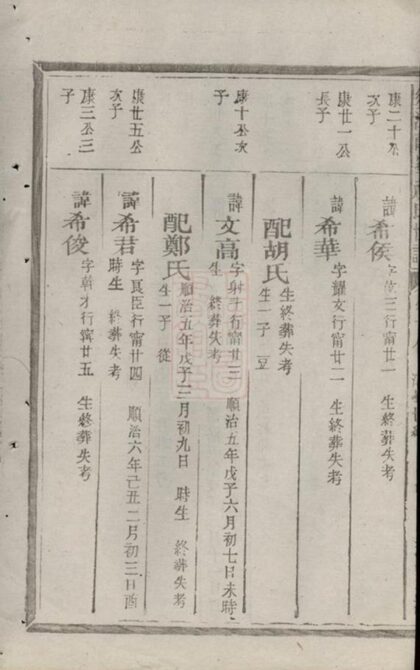 康二十公
次子
諱希侯 字 三行甯廿一 生終葬失考
康廿一公
長子
諱希華 字耀文行甯廿二 生終葬失考
配胡氏 生終葬失考
生一子 豆
康十公次
子
諱文高 字射斗行甯廿三 順治五年戊子六月初七日未時
生 終葬失考
配鄭氏 順治五年戊子三月初九日 時生 終葬失考
生一子 從
康廿五公
次子
諱希君 字良臣行甯廿四 順治六年己丑二月初三日酉
時生 終葬失考
康三公三
子
諱希俊 字幹才行甯廿五 生終葬失考